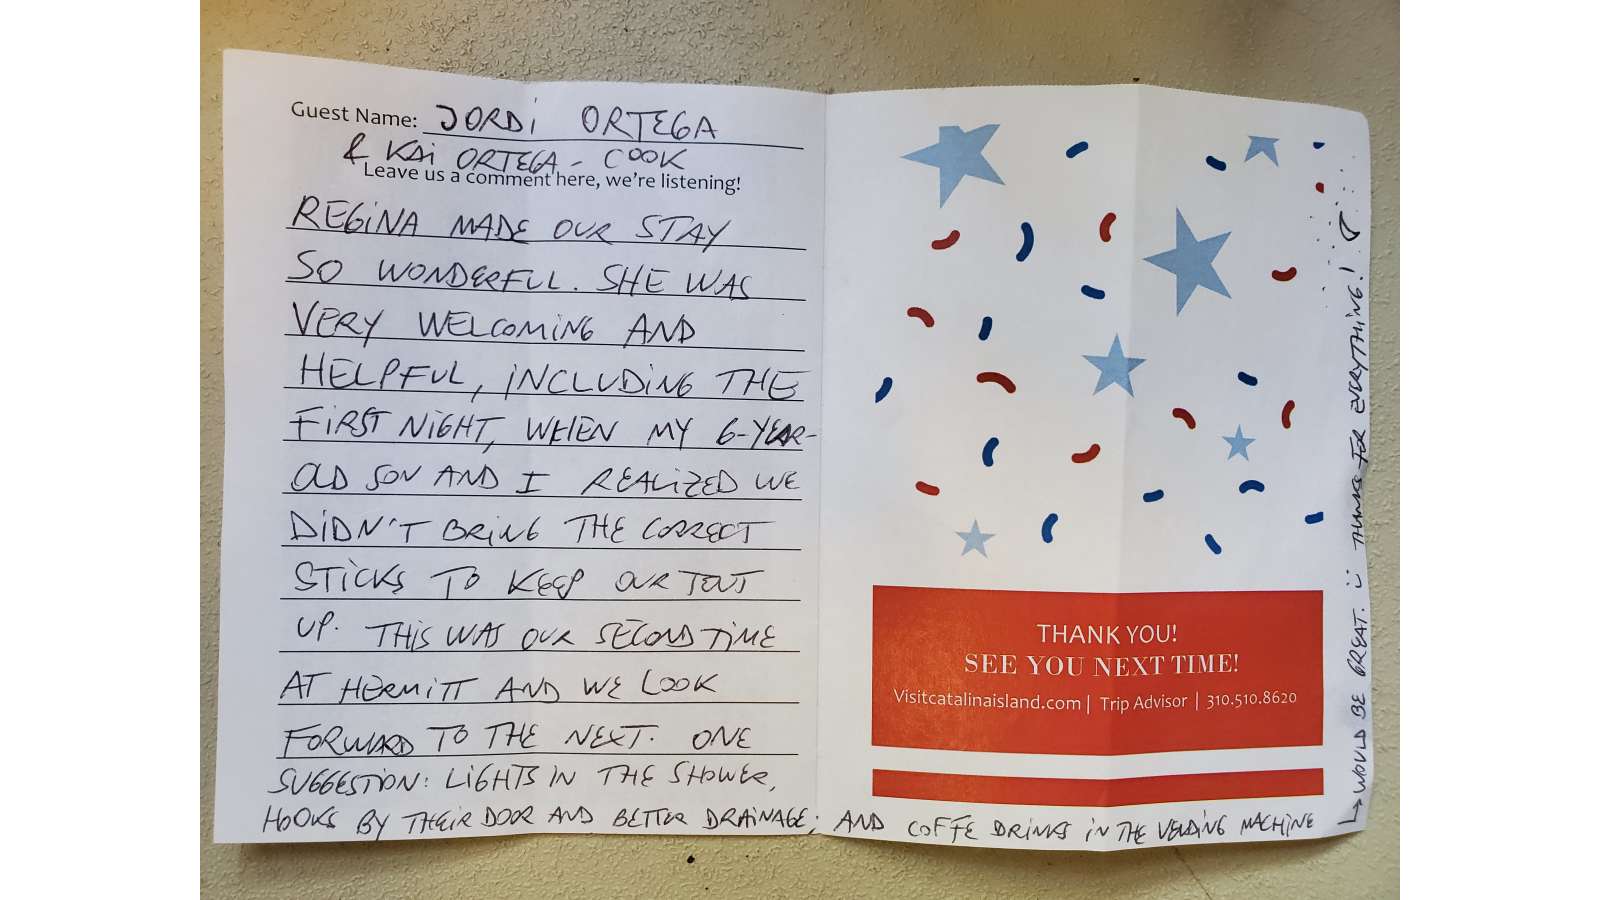 Guest Name: JORDi ORTEGA
& KAi ORTEGA - COOK
Leave us a comment here, we're listening!
REGiNA MADE OUR STAY
SO WONDERFUL. SHE WAS
VERY WELCOMiNG AND
HELPFUL, iNCLUDiNG THE
FiRST NiGHT, WHEN MY 6-YEAR-
OLD SON AND I REALiZED WE
DiDN'T BRiNG THE CORRECT
STiCKS TO KEEP OUR TENT
UP. THiS WAS OUR SECOND TiME
AT HERMiTT AND WE LOOK
FORWARD TO THE NEXT. ONE
SUGGESTiON: LiGHTS IN THE SHOWER,
HOOKS BY THEiR DOOR AND BETTER DRAiNAGE; AND COFFE DRiNKS iN THE VENDiNG MACHiNE
↳ WOULD BE GREAT. THANKS FOR EVERYTHiNG!
THANK YOU!
SEE YOU NEXT TIME!
Visitcatalinaisland.com | Trip Advisor | 310.510.8620